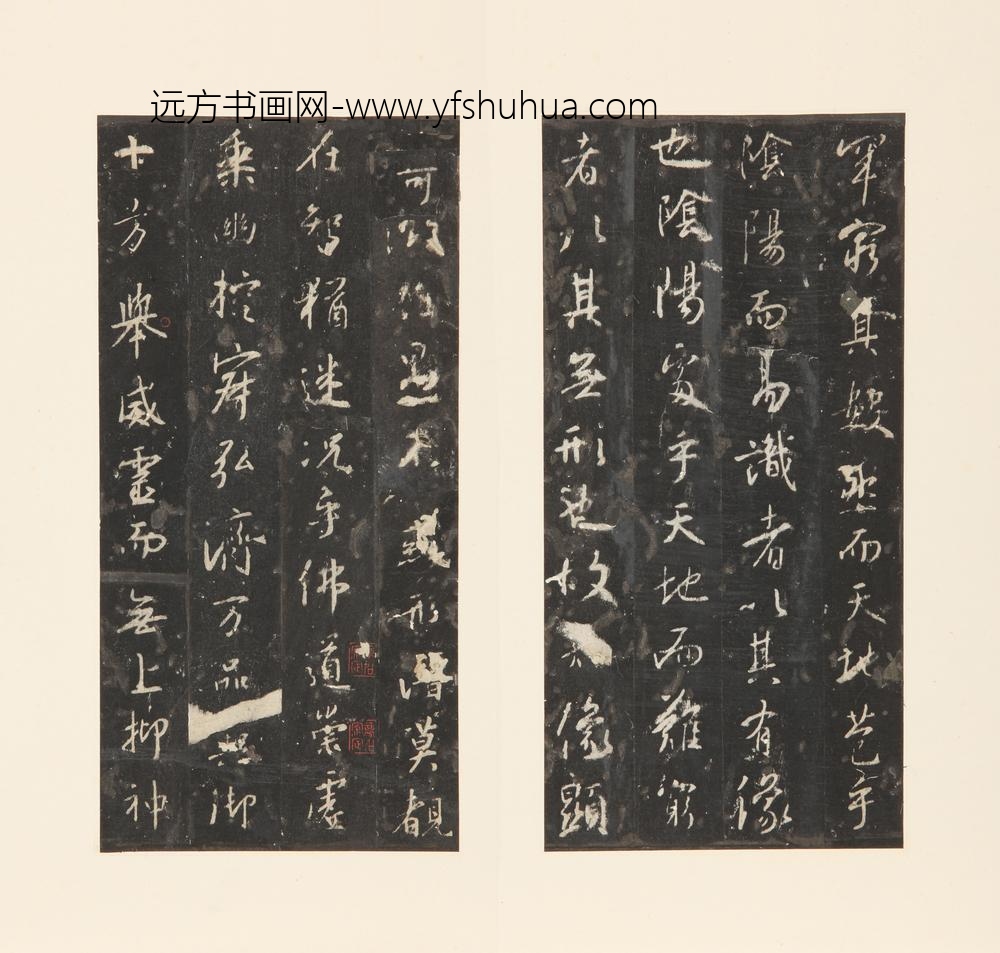 远方书画网-www.yfshuhua.com
罕窮其數然而天地苞乎
陰陽而易識者以其有像
也陰陽處乎天地而難窮
者以其無形也故知像顯
可徵雖愚不惑形潛莫覩
在智猶迷況乎佛道崇虛
乘幽控寂弘濟万品典御
十方舉威靈而無上抑神